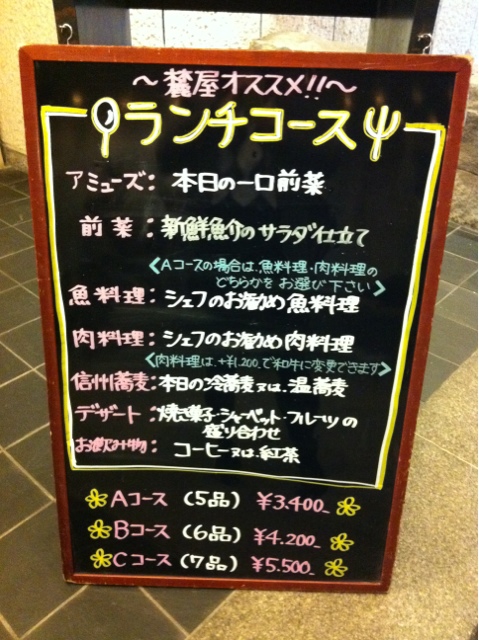 ～麓屋オススメ!!～
ランチコース
アミューズ：本日の一口前菜
前菜：新鮮魚介のサラダ仕立て
〈Aコースの場合は、魚料理・肉料理の
どちらかをお選び下さい〉
魚料理：シェフのお勧め魚料理
肉料理：シェフのお勧め肉料理
〈肉料理は、+¥1,200_で和牛に変更できます〉
信州蕎麦：本日の冷蕎麦又は、温蕎麦
デザート：焼き菓子・シャーベット・フルーツの
盛り合わせ
お飲み物：コーヒー又は、紅茶
Aコース（5品）¥3.400_
Bコース（6品）¥4.200_
Cコース（7品）¥5.500_